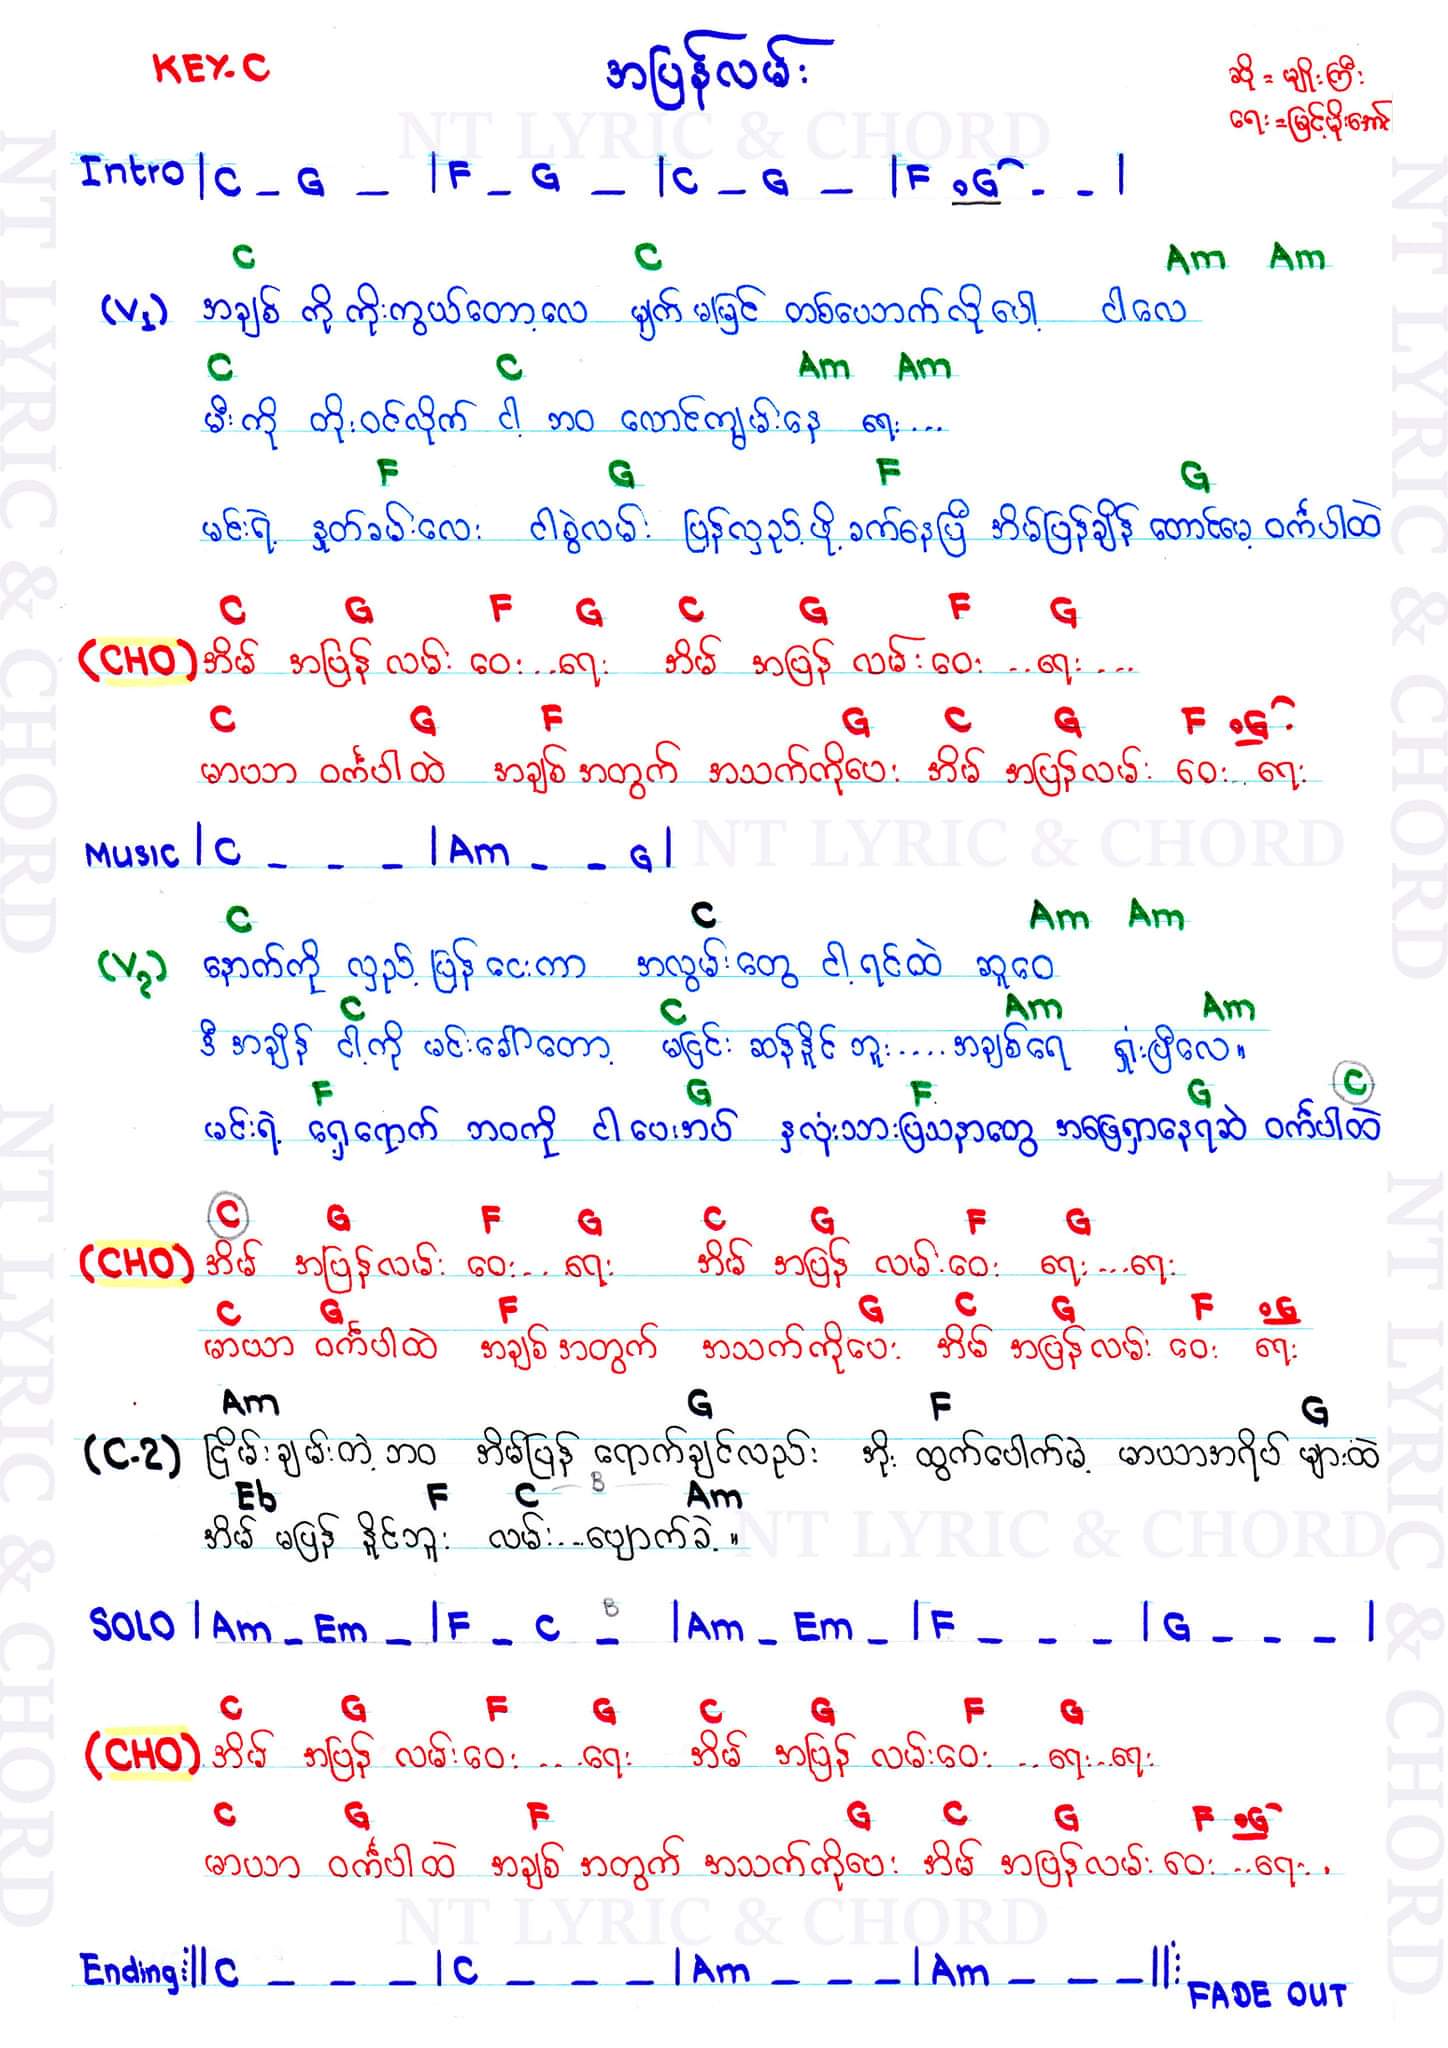 KEY-C
အပြန်လမ်း
ဆို = မျိုးကြီး
ရေး = မြင့်မိုးအောင်
NT LYRIC & CHORD
Intro | C _ G _ | F _ G _ | C _ G _ | F •G _ _ |
C C Am Am
(V1) အချစ် ကို ကိုးကွယ်တော့လေ မျက် မမြင် တစ်ယောက်လို ပေါ့ ငါလေ
C C Am Am
မီးကို တိုးဝင်လိုက် ငါ့ ဘဝ လောင်ကျွမ်းနေ ရေး ...
F G F G
မင်းရဲ့ နှုတ်ခမ်းလေး ငါစွဲလမ်း ပြန်လှည့်ဖို့ ခက်နေပြီ အိမ်ပြန်ချိန် တောင်မေ့ ဝင်္ကပါထဲ
C G F G C G F G
(CHO) အိမ် အပြန် လမ်း ဝေး...ရေး အိမ် အပြန် လမ်း ဝေး ..ရေး ...
C G F G C G F •G
မာယာ ဝင်္ကပါ ထဲ အချစ် အတွက် အသက်ကိုပေး အိမ် အပြန်လမ်း ဝေး.. ရေး
Music | C _ _ _ | Am _ _ G |
NT LYRIC & CHORD
C C Am Am
(V2) နောက်ကို လှည့် ပြန် ငေးကာ အလွမ်းတွေ ငါ့ ရင်ထဲ ဆူဝေ
C C Am Am
ဒီ အချိန် ငါ့ကို မင်းခေါ်တော့ မငြင်း ဆန်နိုင် ဘူး..... အချစ်ရေ ရှုံးပြီလေ။
F G F G C
မင်းရဲ့ ရှေ့ရောက် ဘဝကို ငါ ပေးအပ် နှလုံးသားပြဿနာတွေ အဖြေရှာနေရဆဲ ဝင်္ကပါထဲ
C G F G C G F G
(CHO) အိမ် အပြန်လမ်း ဝေး... ရေး အိမ် အပြန် လမ်းဝေး ရေး...ရေး
C G F G C G F •G
မာယာ ဝင်္ကပါထဲ အချစ် အတွက် အသက်ကိုပေး အိမ် အပြန်လမ်း ဝေး ရေး
Am G F G
(C-2) ငြိမ်းချမ်းတဲ့ ဘဝ အိမ်ပြန် ရောက်ချင်လည်း အိုး ထွက်ပေါက်မဲ့ မာယာအရိပ် များထဲ
Eb F C B Am
အိမ် မပြန် နိုင်ဘူး လမ်း...ပျောက်ခဲ့။
NT LYRIC & CHORD
SOLO | Am _ Em _ | F _ C _ B | Am _ Em _ | F _ _ _ | G _ _ _ |
C G F G C G F G
(CHO) အိမ် အပြန် လမ်းဝေး ....ရေး အိမ် အပြန် လမ်းဝေး ..ရေး..ရေး
C G F G C G F •G
မာယာ ဝင်္ကပါ ထဲ အချစ် အတွက် အသက်ကိုပေး အိမ် အပြန်လမ်း ဝေး ..ရေး.
NT LYRIC & CHORD
Ending :|| C _ _ _ | C _ _ _ | Am _ _ _ | Am _ _ _ ||:
FADE OUT
NT LYRIC & CHORD
NT LYRIC & CHORD
NT LYRIC & CHORD
NT LYRIC & CHORD